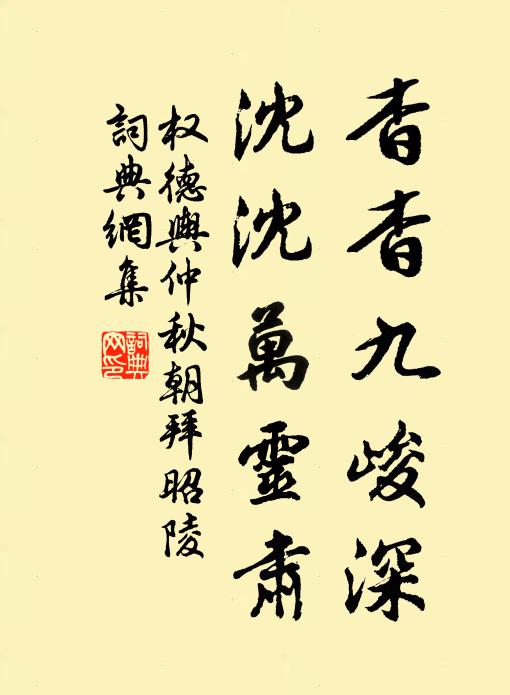 杳杳九峻深
沈沈萬靈肅
权德輿仲秋朝拜昭陵
詞典網集
詞典
网印